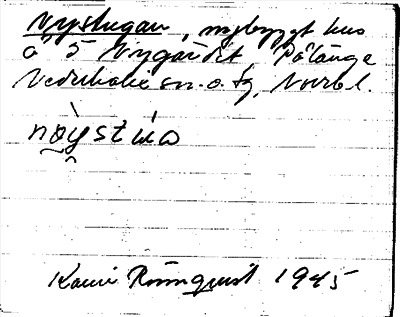 Nystugan, nybyggt hus
å 5 Nygärdet Pålänge
Nederkalix sn. o. tg, Norrbl.
nøystúa
Karin Rönnquist 1945